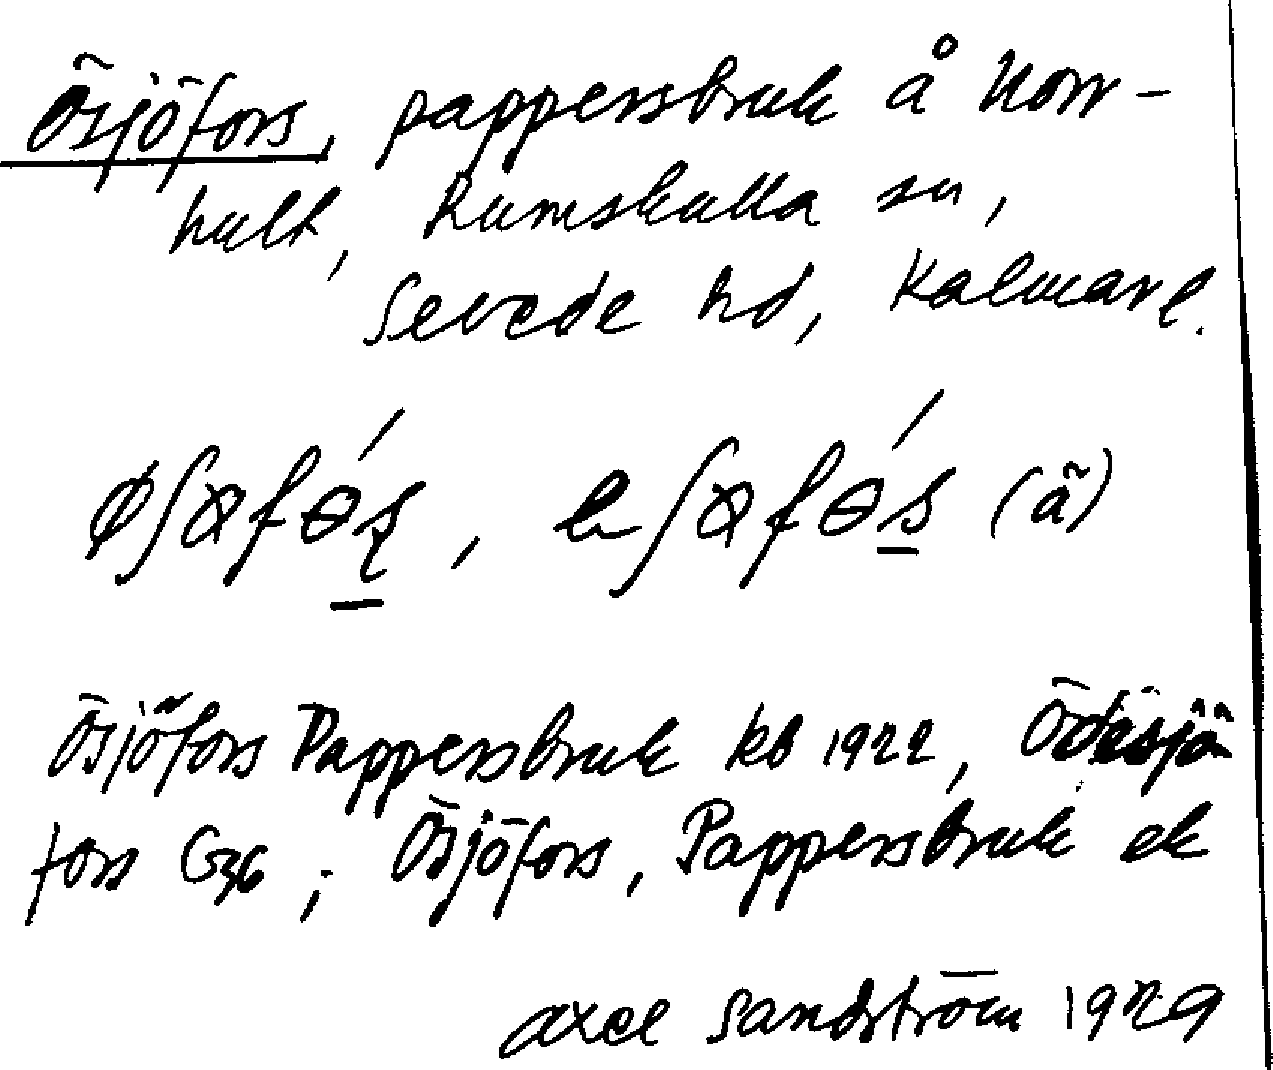 Ösjöfors, pappersbruk å Norr-
hult, Rumskulla sn,
Sevede hd, Kalmar l.
øʃɷfɵ́ʂ, eʃɷfɵ́s (ã)
Ösjöfors Pappersbruk kb 1922, Ödesjö
fors G36; Ösjöfors, Pappersbruk ek
axel Sandström 1929